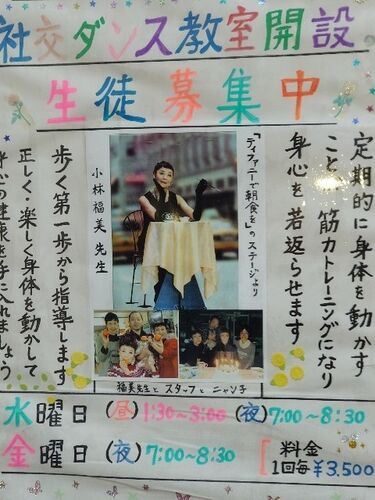 社交ダンス教室開設
生徒募集中
定期的に身体を動かす
こと、筋力トレーニングになり
身心を若返らせます
「ティファニーで朝食を」のステージより
小林福美 先生
歩く第一歩から指導します
正しく・楽しく身体を動かして
身心の健康を手に入れましょう
福美先生と スタッフと ニャン子
水曜日(昼)1:30~3:00(夜)7:00~8:30
金曜日(夜)7:00~8:30
料金
1回毎¥3.500